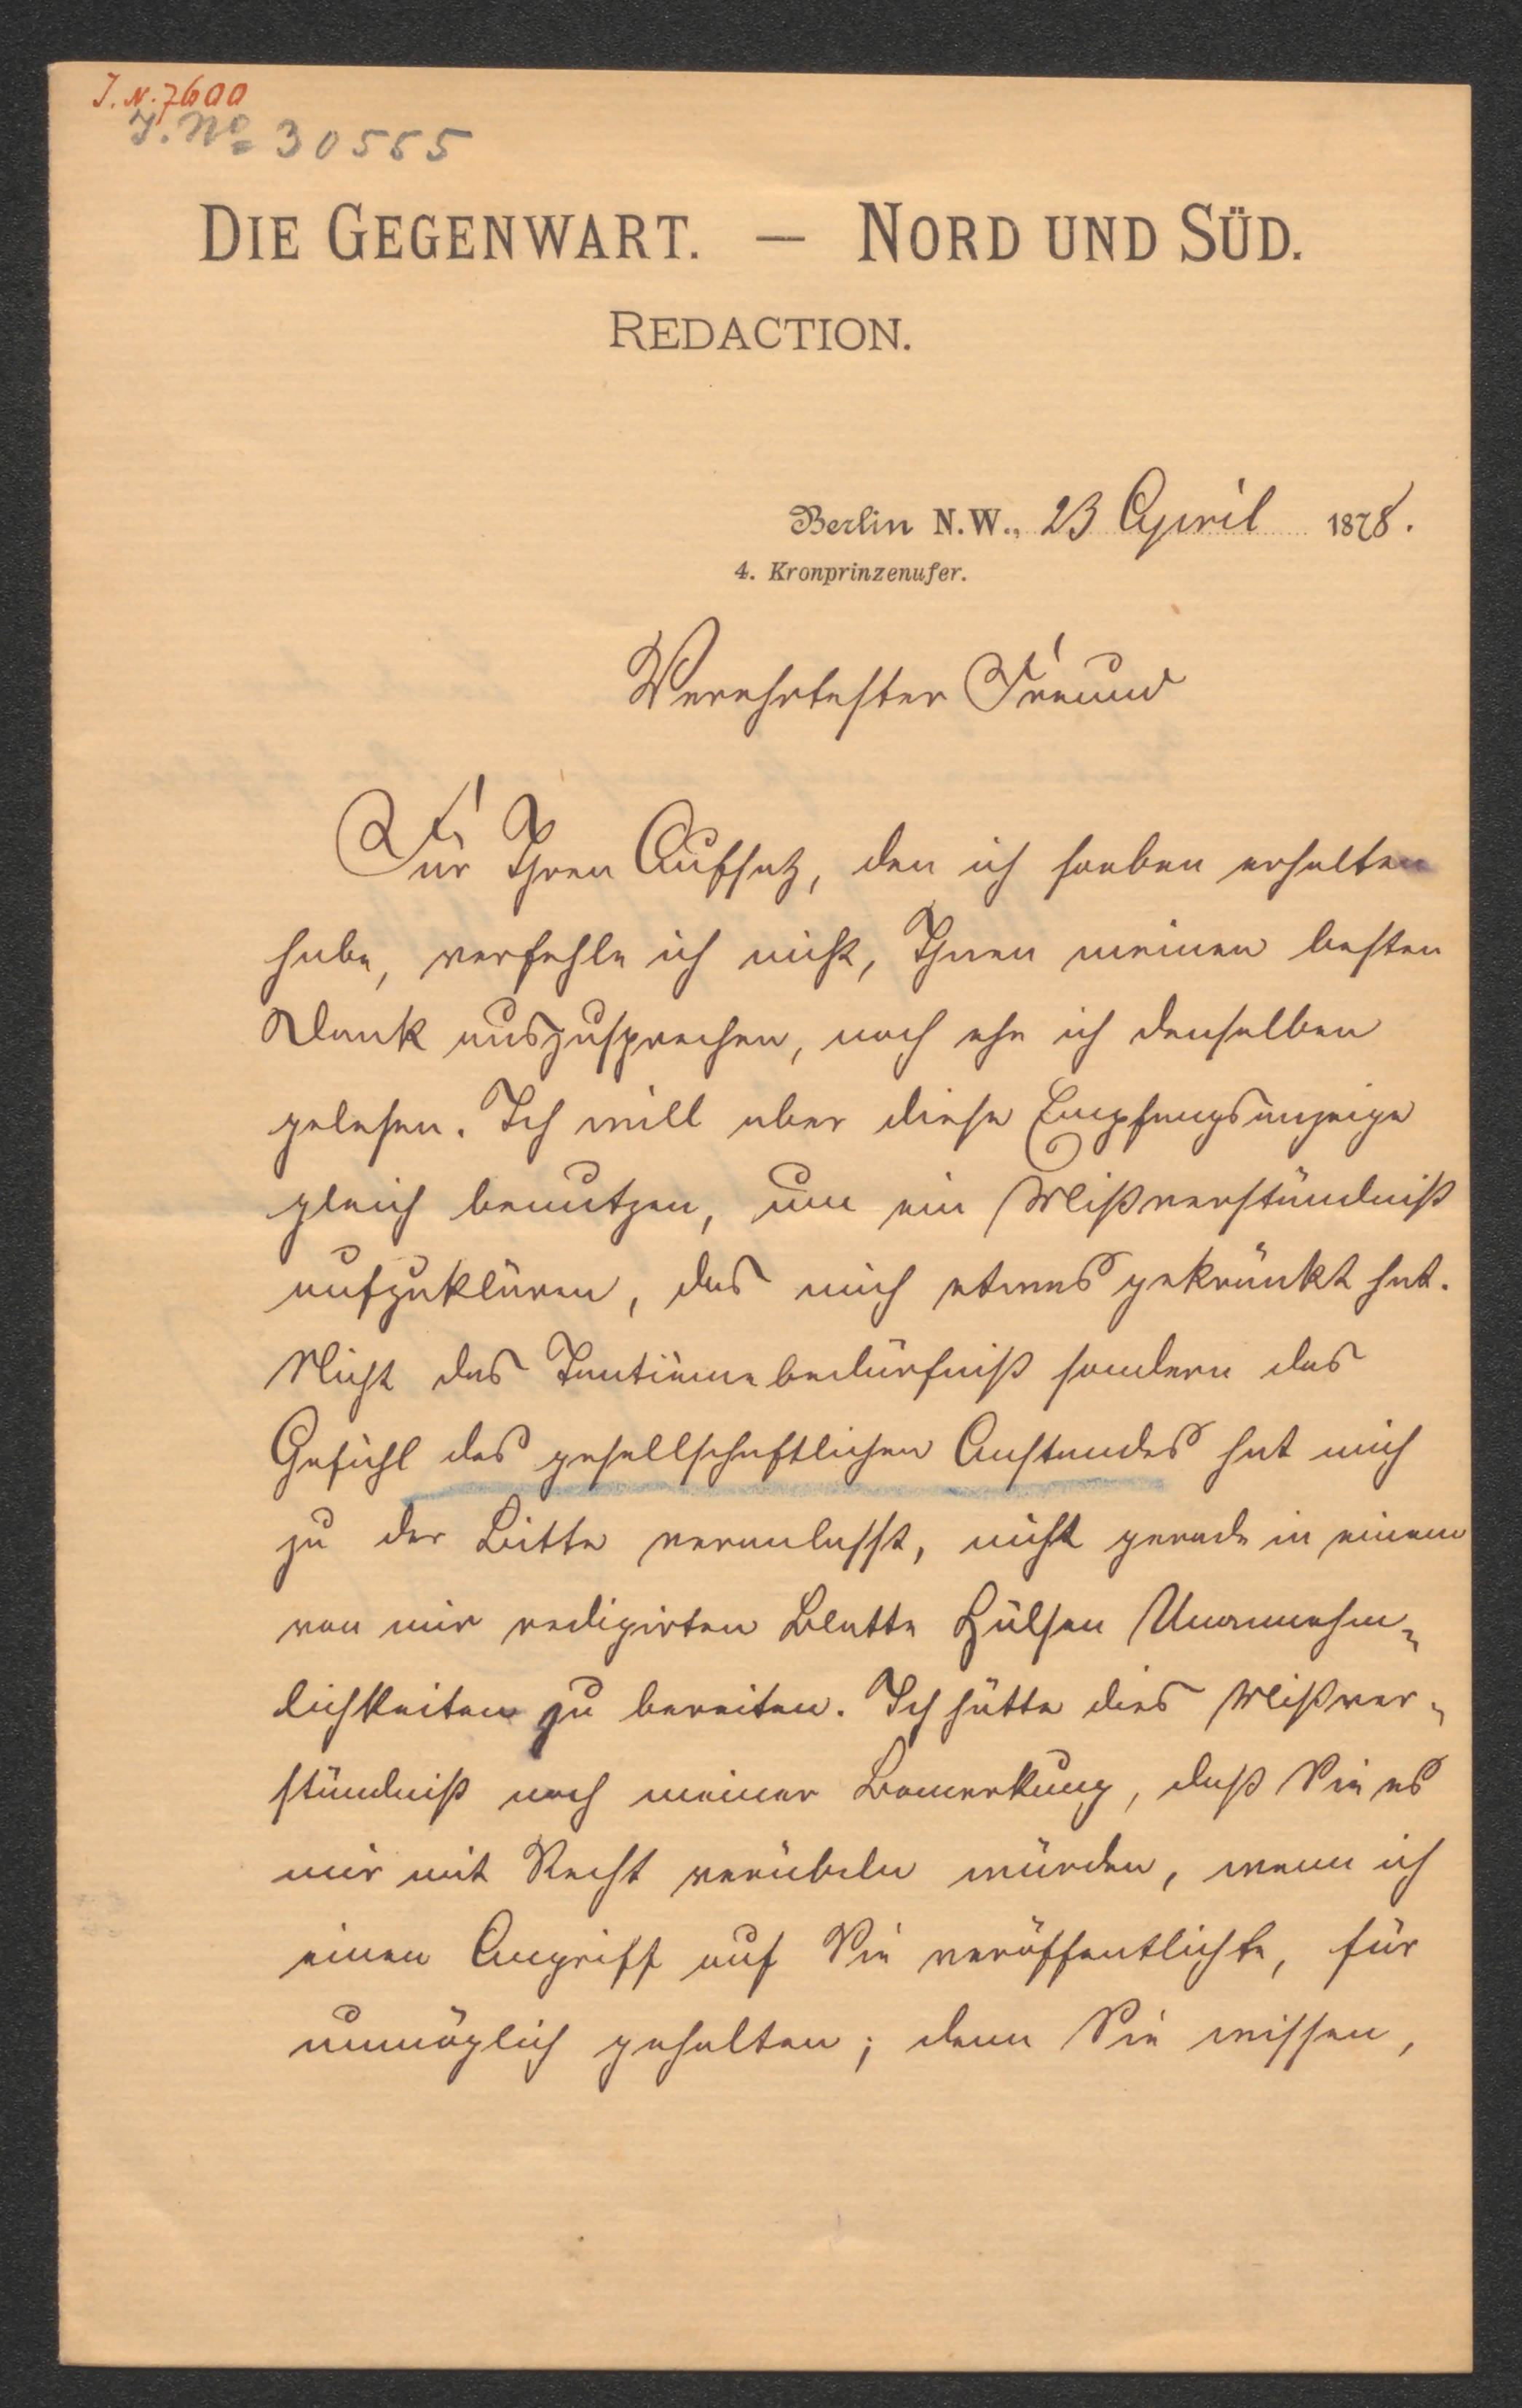 J. N. 7600
J. No 30555
DIE GEGENWART. — NORD UND SÜD.
REDACTION.
Berlin N.W., 23 April 1878.
4. Kronprinzenufer.
Verehrtester Freund
Für Ihren Aufsatz, den ich soeben erhalten
habe, verfehle ich nicht, Ihnen meinen besten
Dank auszusprechen, noch ehe ich denselben
gelesen. Ich will aber diese Empfangsanzeige
gleich benutzen, um ein Mißverständniß
aufzuklären, das mich etwas gekränkt hat.
Nicht das Tantièmebedürfniß sondern das
Gefühl des gesellschaftlichen Anstandes hat mich
zu der Bitte veranlasst, nicht gerade in einem
von mir redigirten Blatte Hülsen Unannehm-
lichkeiten zu bereiten. Ich hätte dies Mißver-
ständniß nach meiner Bemerkung, daß Sie es
mir mit Recht verübeln würden, wenn ich
einen Angriff auf Sie veröffentlichte, für
unmöglich gehalten; denn Sie wissen,